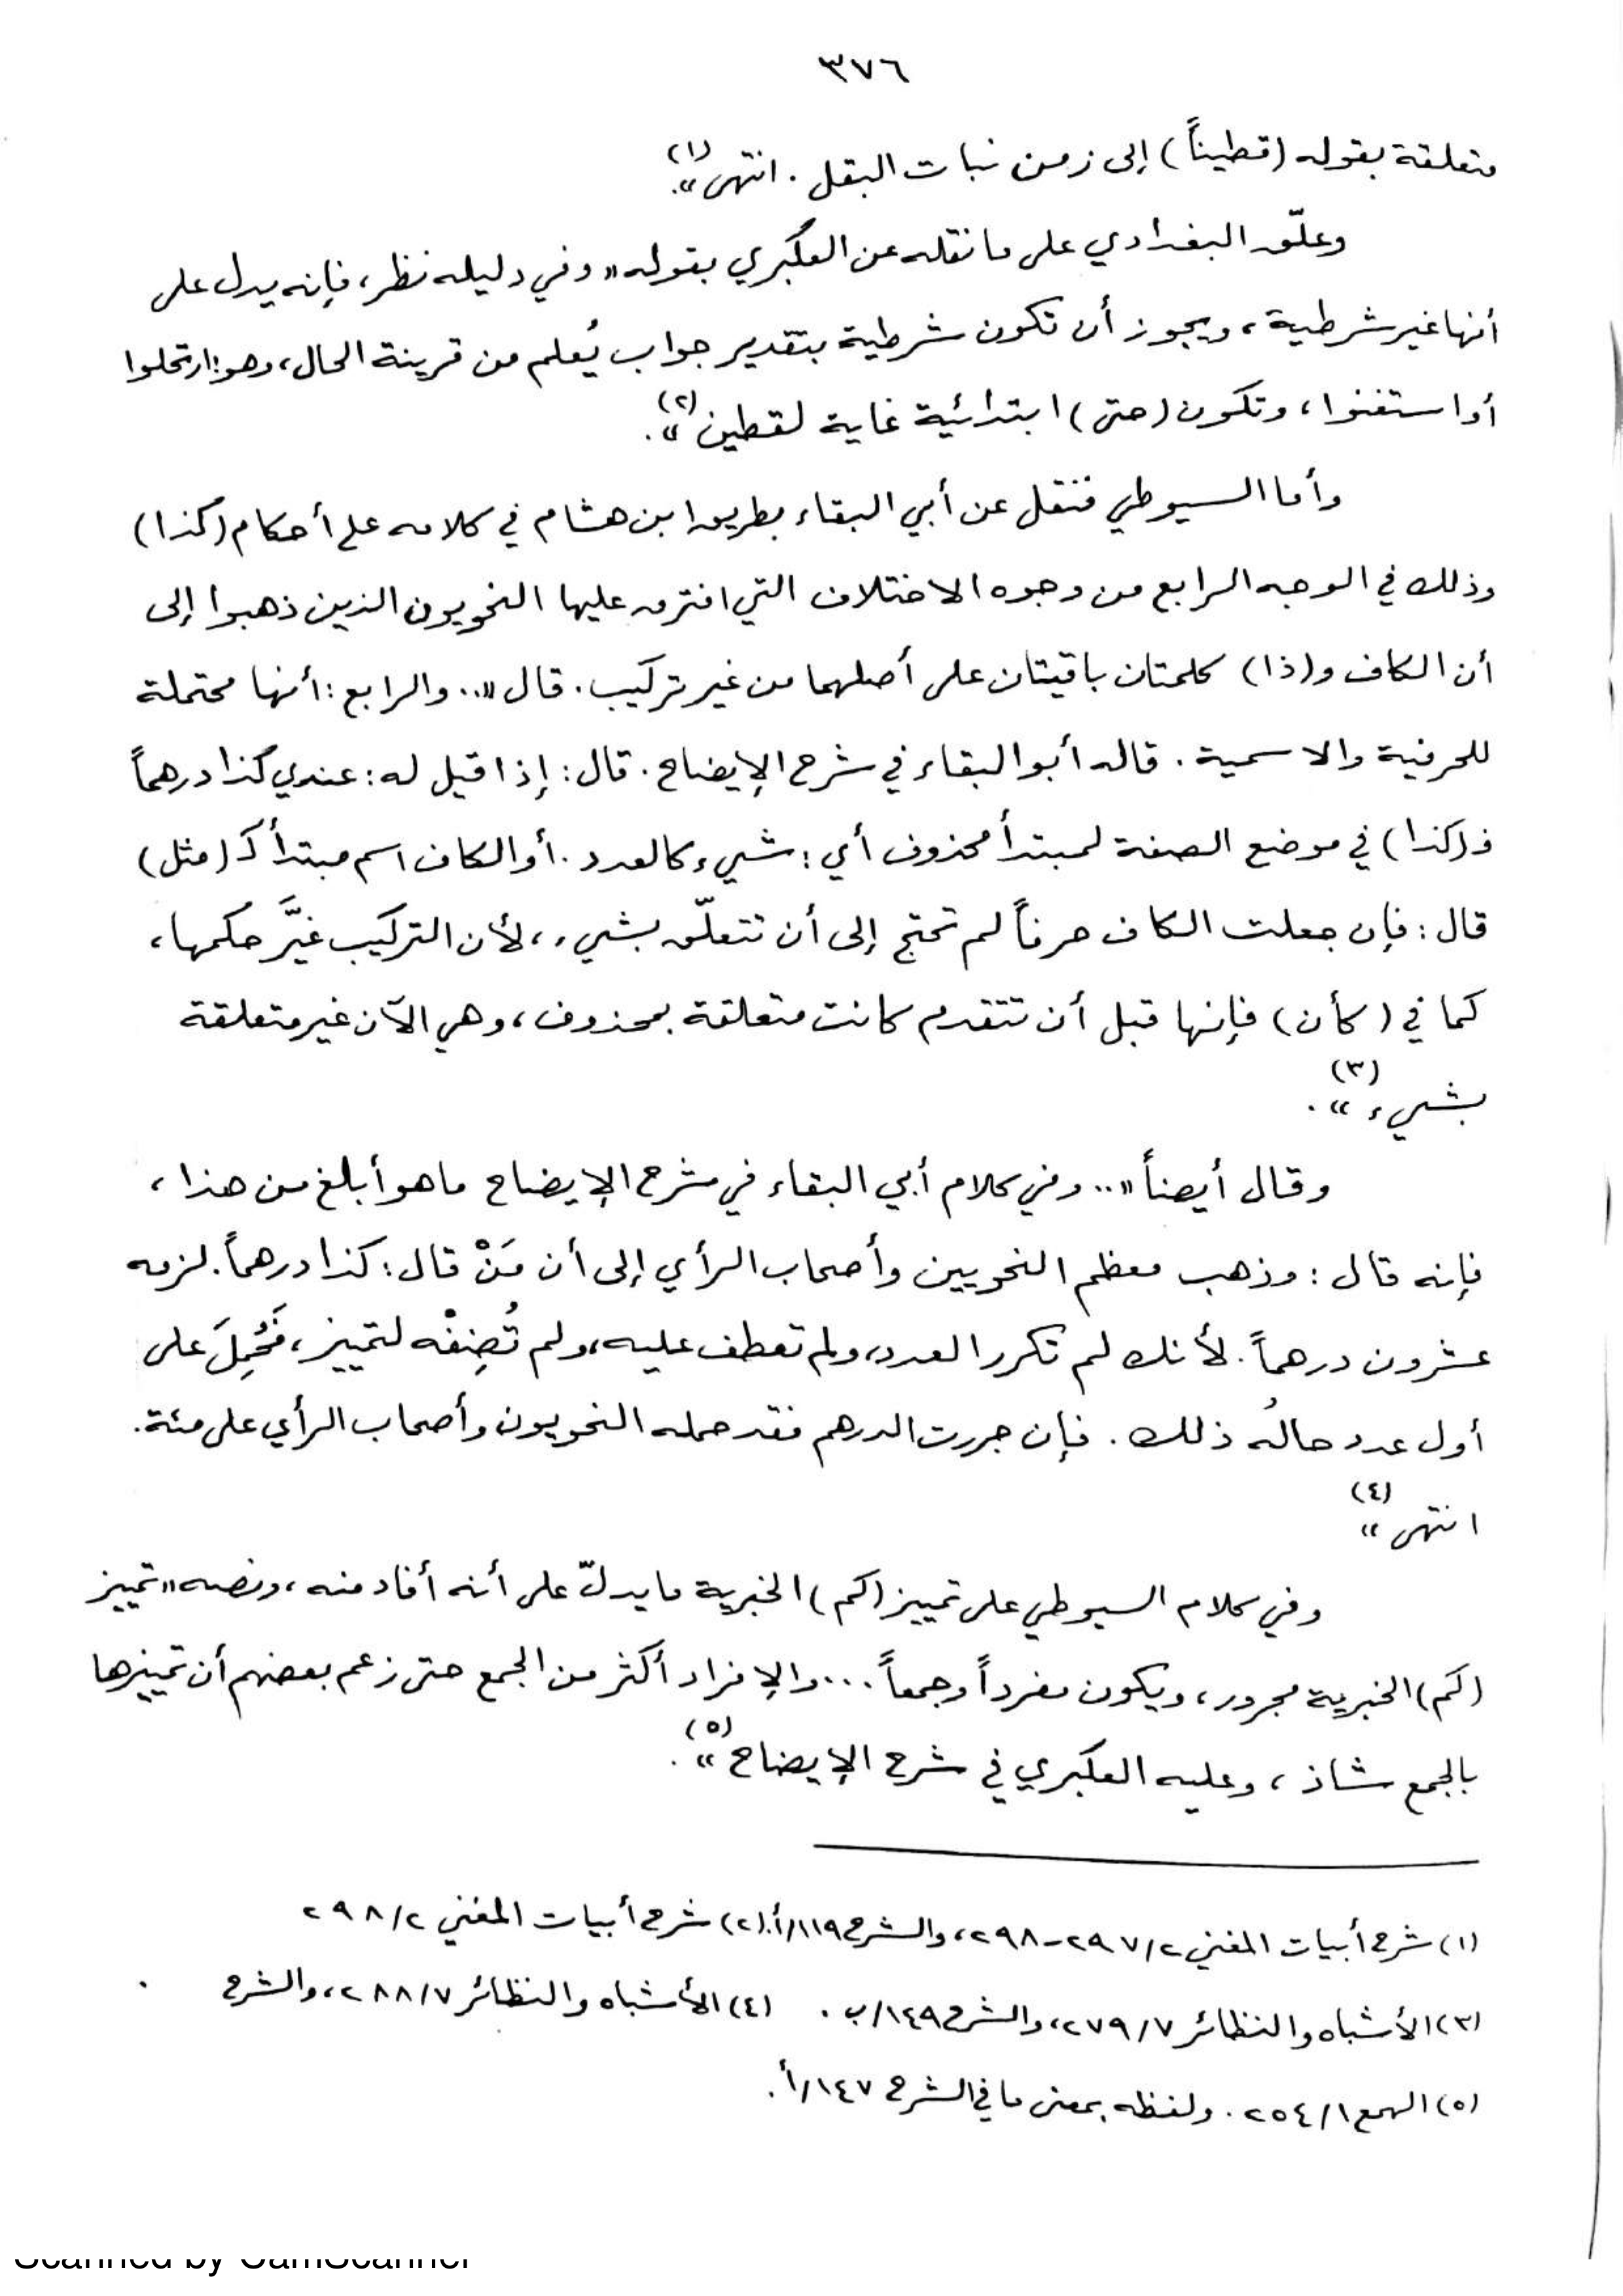 ٣٧٦
متعلقة بقوله (قطيناً) إلى زمن نبات البقل . انتهى»(١).
وعلّق البغدادي على ما نقله عن العكبري بقوله «وفي دليله نظر، فإنه يدل على
أنها غير شرطية، ويجوز أن تكون شرطية بتقدير جواب يُعلم من قرينة الحال، وهو: ارتحلوا
أو استغنوا، وتكون (حتى) ابتدائية غاية لقطين»(٢).
وأما السيوطي فنقل عن أبي البقاء بطريق ابن هشام في كلامه على أحكام (كذا)
وذلك في الوجه الرابع من وجوه الاختلاف التي افترق عليها النحويون الذين ذهبوا إلى
أن الكاف و(ذا) كلمتان باقيتان على أصلهما من غير تركيب. قال «.. والرابع: أنها محتملة
للحرفية والاسمية. قاله أبو البقاء في شرح الإيضاح. قال: إذا قيل له: عندي كذا درهماً
فـ(كذا) في موضع الصفة لمبتدأ محذوف أي: شيء كالعدد. أو الكاف اسم مبتدأ كـ (مثل)
قال: فإن جعلت الكاف حرفاً لم تحتج إلى أن تتعلّق بشيء، لأن التركيب غيَّر حكمها،
كما في (كأن) فإنها قبل أن تتقدم كانت متعلقة بمحذوف، وهي الآن غير متعلقة
بشيء»(٣).
وقال أيضاً «.. وفي كلام أبي البقاء في شرح الإيضاح ما هو أبلغ من هذا،
فإنه قال: وذهب معظم النحويين وأصحاب الرأي إلى أن مَنْ قال: كذا درهماً. لزمه
عشرون درهماً. لأنك لم تكرر العدد، ولم تعطف عليه، ولم تُضِفْه لتمييز، فَحُمِلَ على
أول عدد حالُه ذلك. فإن جررت الدرهم فقد حمله النحويون وأصحاب الرأي على مئة.
انتهى»(٤)
وفي كلام السيوطي على تمييز (كم) الخبرية ما يدلّ على أنه أفاد منه، ونصه «تمييز
(كم) الخبرية مجرور، ويكون مفرداً وجمعاً ... والإفراد أكثر من الجمع حتى زعم بعضهم أن تمييزها
بالجمع شاذ، وعليه العكبري في شرح الإيضاح»(٥).
(١) شرح أبيات المغني ٢٩٧/٢-٢٩٨، والشرح ١١٩/أ. (٢) شرح أبيات المغني ٢٩٨/٢
(٣) الأشباه والنظائر ٢٧٩/٧، والشرح ١٤٩/ب. (٤) الأشباه والنظائر ٢٨٨/٧، والشرح .
(٥) الهمع ٢٥٤/١. ولفظه بمعنى ما في الشرح ١٤٧/أ.
Scanned by CamScanner